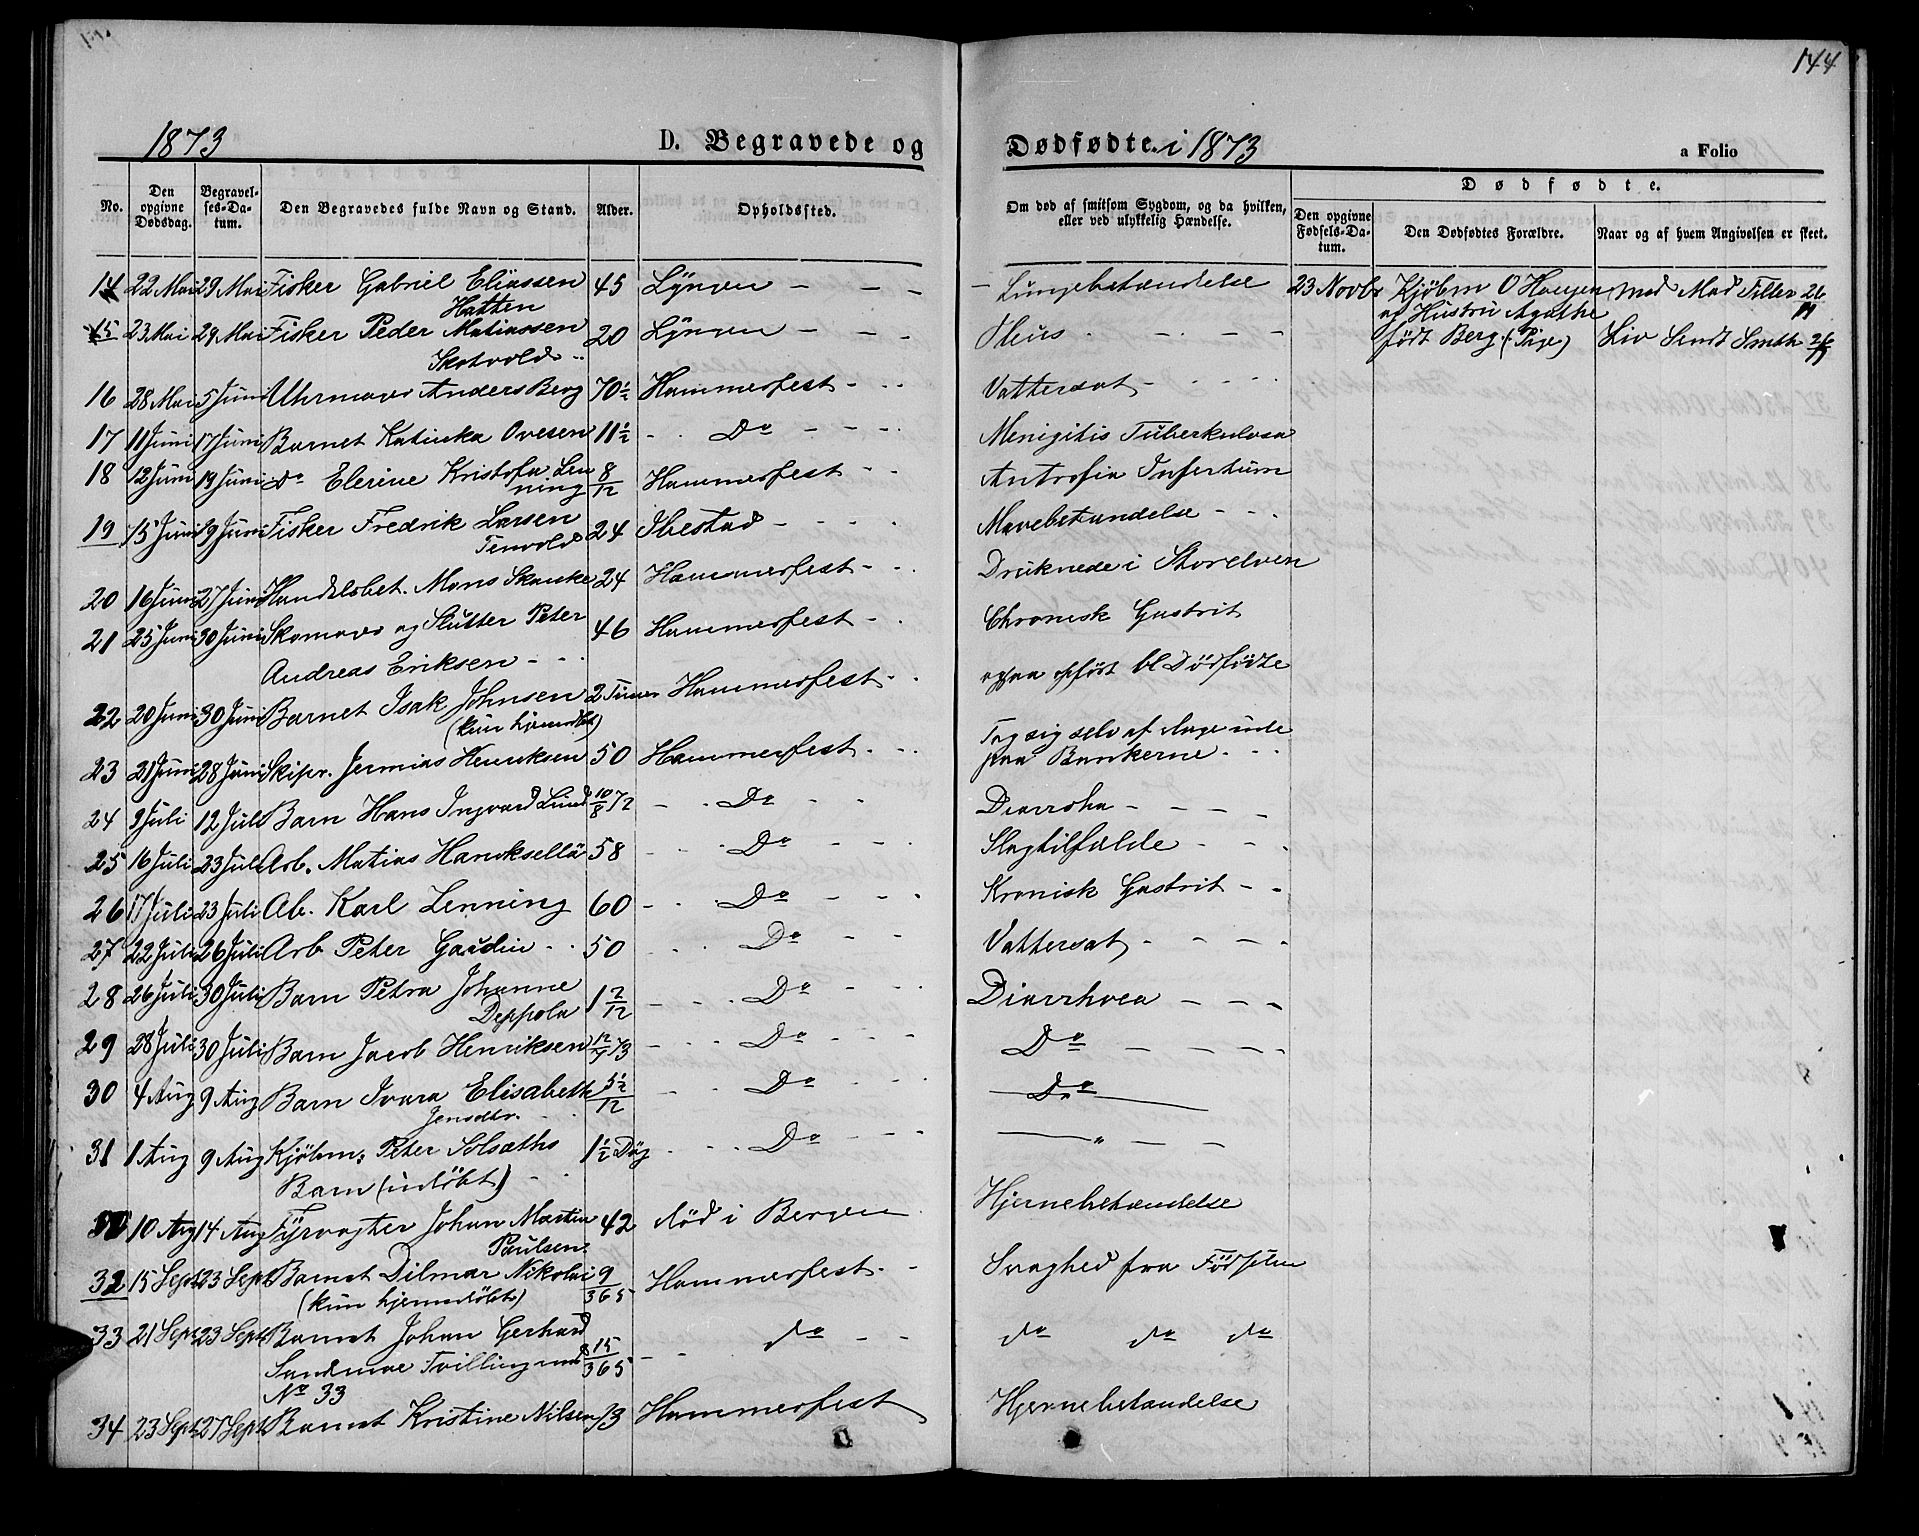 144
1873
D. Begravede og
Dødfødte. i 1873
a Folio
No.
Den opgivne Dødsdag.
Begravelses-Datum.
Den Begravedes fulde Navn og Stand.
Alder.
Opholdssted.
Om død af smitsom Sygdom, og da hvilken, eller ved ulykkelig Hændelse.
Dødfødte.
Den opgivne Fødsels-Datum.
Den Dødfødtes Forældre.
Naar og af hvem Angivelsen er skeet.
14 22 Mai 29 Mai Fisker Gabriel Eliassen 45 Lyngen - - - - Lungebetændelse 23 Novbr Kjøbm O Haugen med Mad Tiller 26/11
Hatten
af Hustru Agathe
15 23 Mai 29 Mai Fisker Peder Matiassen 20 Lyngen - - -
født Berg. (Pige) Liv Smdt Smith 26/11
Skotvold
16 28 Mai 5 Juni Uhrmager Anders Berg 70½ Hammerfest - - - Vattersot - - - -
17 11 Juni 17 Juni Barnet Katinka Ovesen 11½ - - Do - - - - Menigitis Tuberkulosa
18 12 Juni 19 Juni Do Elerine Kristofa Len 8/12 Hammerfest - - Antrofia Infertum
ning
19 15 Juni 19 Juni Fisker Fredrik Larsen 24 Ibestad - - - - Mavebetændelse - - -
Tenvold
20 16 Juni 27 Juni Handelsbet. Mons Skanke 24 Hammerfest - - - Druknede i Storelven
21 25 Juni 30 Juni Skomager og Slutter Peter 46 Hammerfest - - Chronisk Gastrit
Andreas Eriksen - - -
ogsaa opført bl Dødfødte
22 20 Juni 30 Juni Barnet Isak Johnsen 2 Timer Hammerfest - -
(kun hjemdøbt)
23 21 Juni 28 Juni Skipr. Jermias Henriksen 50 Hammerfest - - - Tog sig selv af Dage inde
paa Bankerne - - -
24 9 Juli 12 Juli Barn Hans Ingvard Lund 10/8 72 - - Do - - Diarroha - - - -
25 16 Juli 23 Juli Arb. Matias Hanksellä 58 - - - Do - - - Slagtilfælde - - -
26 17 Juli 23 Juli Ab. Karl Lenning 60 - - - Do - - - Kronisk Gastrit - -
27 22 Juli 26 Juli Arb Peter Gaudin - - 50 - - Do - - Vattersot - - - -
28 26 Juli 30 Juli Barn Petra Johanne 1 2/12 - - - Do - - - Diarrhoea - - -
Deppola
29 28 Juli 30 Juli Barn Jacob Henriksen 12/4 73 - - - Do - - - Do - - - -
30 4 Aug 9 Aug Barn Ivara Elisabeth 5½/12 - - Do - - - Do
Jensdtr. - -
31 1 Aug 9 Aug Kjøbm. Peter Solsæths 1½ Døg - - - Do - - - - " - -
Barn (udöbt) - -
10 Aug 14 Aug Fyrvogter Johan Martin 42 død i Bergen Hjernebetændelse
Paulsen
32 15 Sept 23 Sept Barnet Dilmar Nikolai 9/365 Hammerfest - - Svaghed fra Fødselen
(kun hjemmedöbt)
33 21 Sept 23 Sept Barnet Johan Gerhard 15/365 - - do - - do do do
Sandmoe Tvilling med
No 33
34 23 Sept 27 Sept Barnet Kristine Nilsen 13 Hammerfest Hjernebetændelse